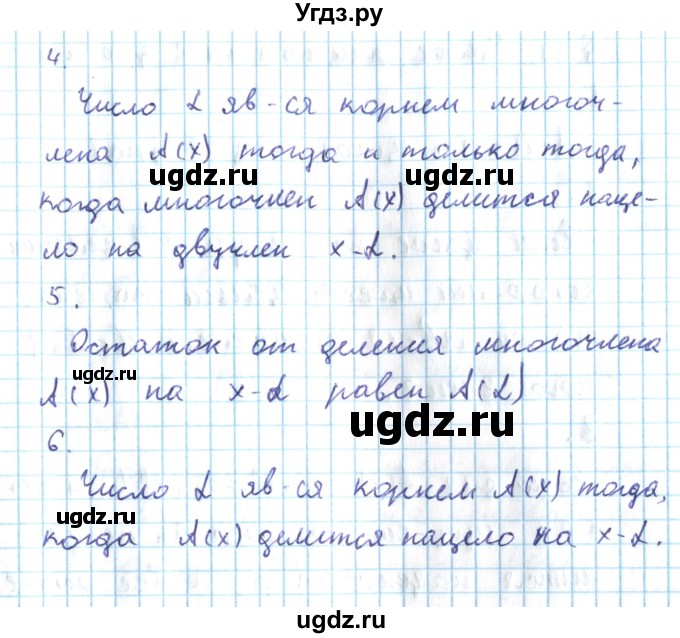 Угдз.ру
4.
Число α яв-ся корнем многоч-
лена A(x) тогда и только тогда,
ugdz.ru ugdz.ru
когда многочлен A(x) делится наце-
ло на двучлен x-α.
5.
Остаток от деления многочлена
ugdz.ru
A(x) на x-α равен A(α)
ugdz.ru
6.
Число α яв-ся корнем A(x) тогда,
ugdz.ru ugdz.ru
когда A(x) делится нацело на x-α.
ugdz.ru